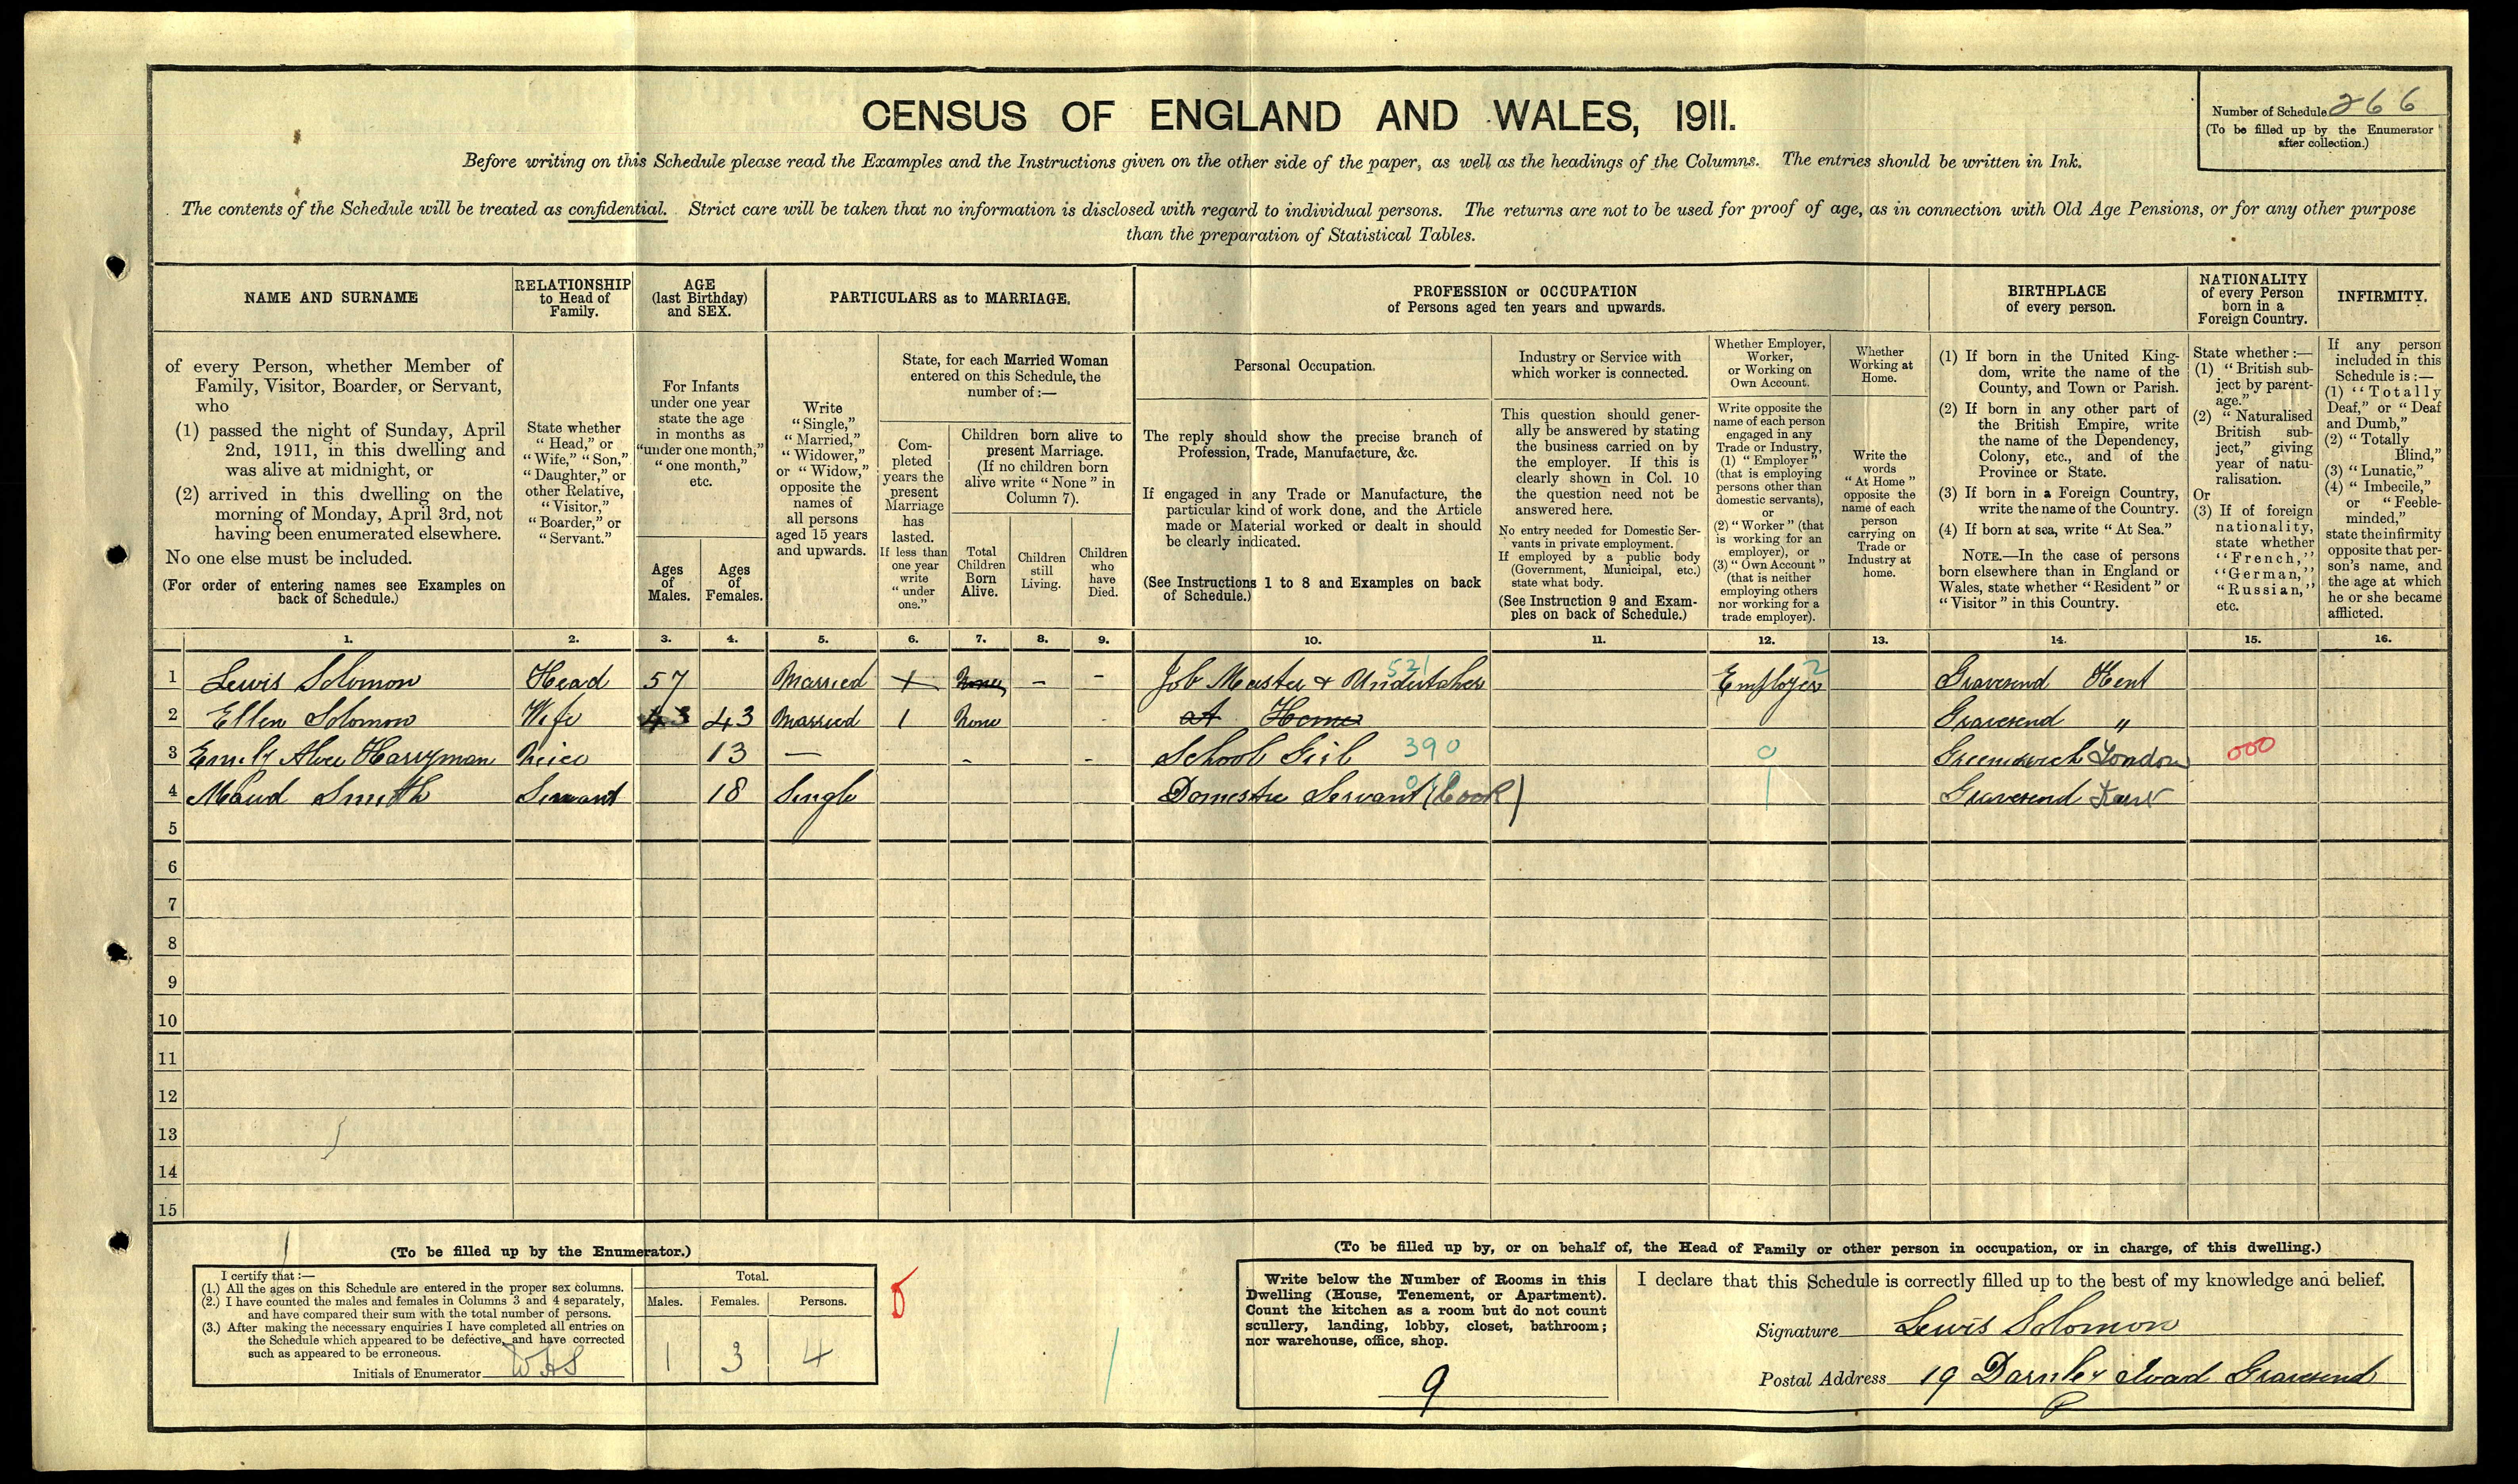 CENSUS OF ENGLAND AND WALES, 1911.
Number of Schedule 266
(To be filled up by the Enumerator
after collection.)
Before writing on this Schedule please read the Examples and the Instructions given on the other side of the paper, as well as the headings of the Columns. The entries should be written in Ink.
The contents of the Schedule will be treated as confidential. Strict care will be taken that no information is disclosed with regard to individual persons. The returns are not to be used for proof of age, as in connection with Old Age Pensions, or for any other purpose
than the preparation of Statistical Tables.
NAME AND SURNAME
of every Person, whether Member of
Family, Visitor, Boarder, or Servant,
who
(1) passed the night of Sunday, April
2nd, 1911, in this dwelling and
was alive at midnight, or
(2) arrived in this dwelling on the
morning of Monday, April 3rd, not
having been enumerated elsewhere.
No one else must be included.
(For order of entering names see Examples on
back of Schedule.)
RELATIONSHIP
to Head of
Family.
State whether
"Head," or
"Wife," "Son,"
"Daughter," or
other Relative,
"Visitor,"
"Boarder," or
"Servant."
AGE
(last Birthday)
and SEX.
For Infants
under one year
state the age
in months as
"under one month,"
"one month,"
etc.
Ages
of
Males.
Ages
of
Females.
PARTICULARS as to MARRIAGE.
Write
"Single,"
"Married,"
"Widower,"
or "Widow,"
opposite the
names of
all persons
aged 15 years
and upwards.
State, for each Married Woman
entered on this Schedule, the
number of:—
Com-
pleted
years the
present
Marriage
has
lasted.
If less than
one year
write
"under
one."
Children born alive to
present Marriage.
(If no children born
alive write "None" in
Column 7).
Total
Children
Born
Alive.
Children
still
Living.
Children
who
have
Died.
PROFESSION or OCCUPATION
of Persons aged ten years and upwards.
Personal Occupation.
The reply should show the precise branch of
Profession, Trade, Manufacture, &c.
If engaged in any Trade or Manufacture, the
particular kind of work done, and the Article
made or Material worked or dealt in should
be clearly indicated.
(See Instructions 1 to 8 and Examples on back
of Schedule.)
Industry or Service with
which worker is connected.
This question should gener-
ally be answered by stating
the business carried on by
the employer. If this is
clearly shown in Col. 10
the question need not be
answered here.
No entry needed for Domestic Ser-
vants in private employment.
If employed by a public body
(Government, Municipal, etc.)
state what body.
(See Instruction 9 and Exam-
ples on back of Schedule.)
Whether Employer,
Worker,
or Working on
Own Account.
Write opposite the
name of each person
engaged in any
Trade or Industry,
(1) "Employer"
(that is employing
persons other than
domestic servants),
or
(2) "Worker" (that
is working for an
employer), or
(3) "Own Account"
(that is neither
employing others
nor working for a
trade employer).
Whether
Working at
Home.
Write the
words
"At Home"
opposite the
name of each
person
carrying on
Trade or
Industry at
home.
BIRTHPLACE
of every person.
(1) If born in the United King-
dom, write the name of the
County, and Town or Parish.
(2) If born in any other part of
the British Empire, write
the name of the Dependency,
Colony, etc., and of the
Province or State.
(3) If born in a Foreign Country,
write the name of the Country.
(4) If born at sea, write "At Sea."
NOTE.—In the case of persons
born elsewhere than in England or
Wales, state whether "Resident" or
"Visitor" in this Country.
NATIONALITY
of every Person
born in a
Foreign Country.
State whether:—
(1) "British sub-
ject by parent-
age."
(2) "Naturalised
British sub-
ject," giving
year of natu-
ralisation.
Or
(3) If of foreign
nationality,
state whether
"French,"
"German,"
"Russian,"
etc.
INFIRMITY.
If any person
included in this
Schedule is:—
(1) "Totally
Deaf," or "Deaf
and Dumb,"
(2) "Totally
Blind,"
(3) "Lunatic,"
(4) "Imbecile,"
or "Feeble-
minded,"
state the infirmity
opposite that per-
son's name, and
the age at which
he or she became
afflicted.
1. 2. 3. 4. 5. 6. 7. 8. 9. 10. 11. 12. 13. 14. 15. 16.
1 Lewis Solomon Head 57 Married 1 None – – Job Master & Undertaker 521 Employer 2 Gravesend Kent
2 Ellen Solomon Wife 43 43 Married 1 None - at Home Gravesend "
3 Emily Alice Harryman Niece 13 — - - School Girl 390 0 Greenwich London 000
4 Maud Smith Servant 18 Single Domestic Servant (Cook) 1 Gravesend Kent
5
6
7
8
9
10
11
12
13
14
15
(To be filled up by the Enumerator.)
I certify that:—
(1.) All the ages on this Schedule are entered in the proper sex columns.
(2.) I have counted the males and females in Columns 3 and 4 separately,
and have compared their sum with the total number of persons.
(3.) After making the necessary enquiries I have completed all entries on
the Schedule which appeared to be defective, and have corrected
such as appeared to be erroneous.
Initials of Enumerator WHS
Total.
Males. Females. Persons.
1 3 4
(To be filled up by, or on behalf of, the Head of Family or other person in occupation, or in charge, of this dwelling.)
Write below the Number of Rooms in this
Dwelling (House, Tenement, or Apartment).
Count the kitchen as a room but do not count
scullery, landing, lobby, closet, bathroom;
nor warehouse, office, shop.
9
I declare that this Schedule is correctly filled up to the best of my knowledge and belief.
Signature Lewis Solomon
Postal Address 19 Darnley Road Gravesend